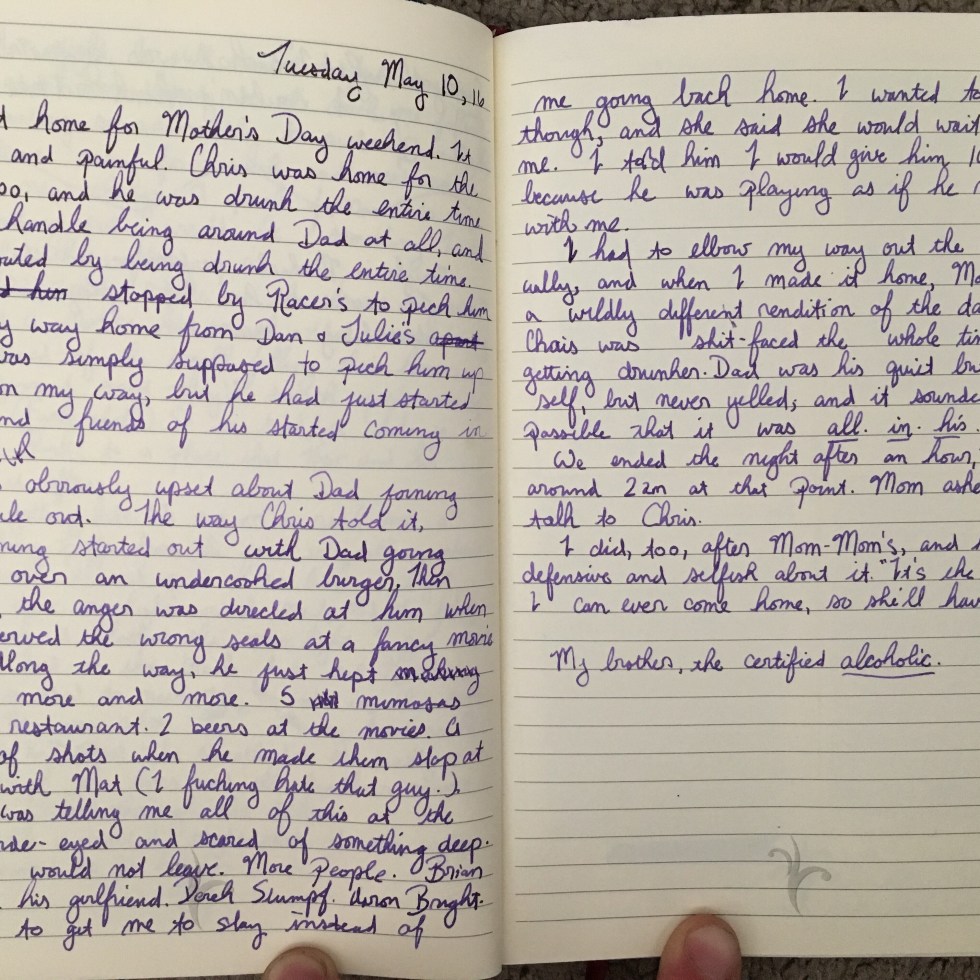 Tuesday May 10, 16
home for Mother's Day weekend. It
and painful. Chris was home for the
oo, and he was drunk the entire time
handle being around Dad at all, and
uted by being drunk the entire time.
d him stopped by Racer's to pick him
y way home from Dan & Julie's apart
as simply supposed to pick him up
on my way, but he had just started
nd friends of his started coming in
obviously upset about Dad joining
le out. The way Chris told it,
ning started out with Dad going
over an undercooked burger, then
the anger was directed at him when
erved the wrong seats at a fancy movie
Along the way, he just kept making
more and more. 5 mimosas
restaurant. 2 beers at the movies. A
of shots when he made them stop at
with Mat (I fucking hate that guy.).
was telling me all of this at the
ide-eyed and scared of something deep.
would not leave. More people. Brian
his girlfriend. Derek Slumpf. Aaron Bright.
to get me to stay instead of
me going back home. I wanted to
though, and she said she would wait
me. I told him I would give him 10
because he was playing as if he
with me.
I had to elbow my way out the
ually, and when I made it home, Mo
a wildly different rendition of the da
Chris was shit-faced the whole tim
getting drunker. Dad was his quiet
self, but never yelled, and it sounde
possible that it was all. in. his.
We ended the night after an hour,
around 2am at that point. Mom aske
talk to Chris.
I did, too, after Mom-Mom's, and
defensive and selfish about it. "It's the
I can ever come home, so she'll hav
My brother, the certified alcoholic.